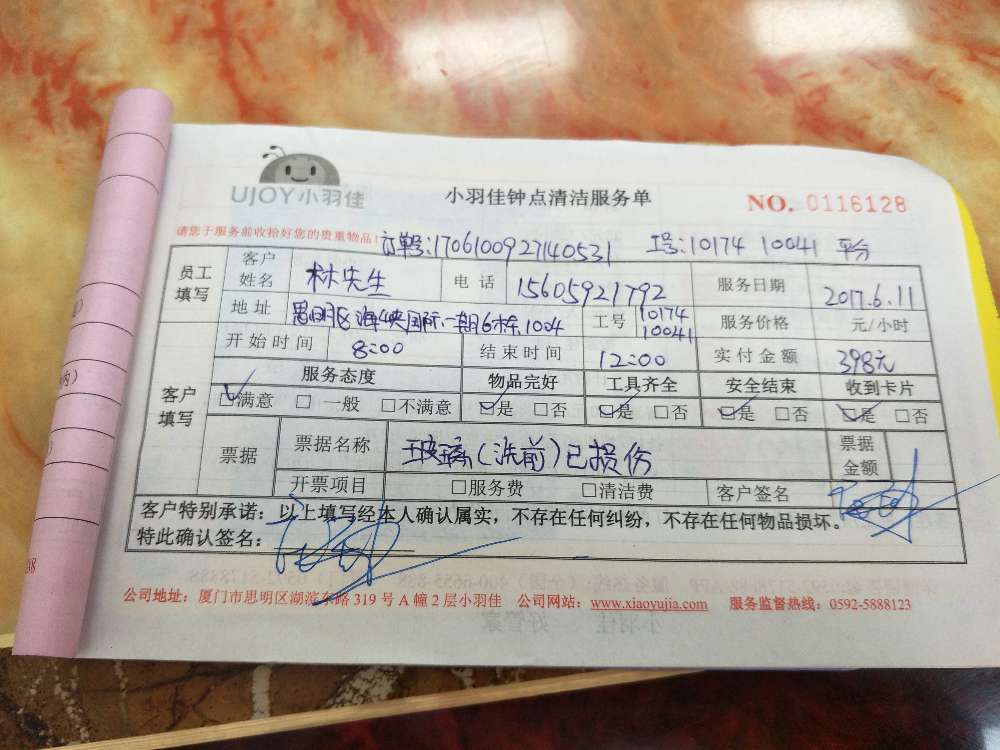 UJOY小羽佳
小羽佳钟点清洁服务单
NO. 0116128
请您于服务前收拾好您的贵重物品!
订单号:1706100927140531 工号:10174 10041 平分
员工填写 客户姓名 林先生 电话 15605921792 服务日期 2017.6.11
地址 思明区海峡国际一期6栋1004 工号 10174 10041 服务价格 元/小时
客户填写 开始时间 8:00 结束时间 12:00 实付金额 398元
服务态度 物品完好 工具齐全 安全结束 收到卡片
☑满意 □一般 □不满意 ☑是 □否 ☑是 □否 ☑是 □否 ☑是 □否
票据 票据名称 玻璃(洗前)已损伤 票据金额
开票项目 □服务费 □清洁费 客户签名
客户特别承诺：以上填写经本人确认属实，不存在任何纠纷，不存在任何物品损坏。
特此确认签名：
公司地址：厦门市思明区湖滨东路 319 号 A 幢 2 层小羽佳 公司网站：www.xiaoyujia.com 服务监督热线：0592-5888123